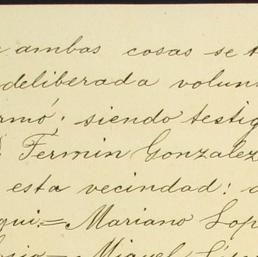 ambas cosas se
deliberada volun
rmó: siendo testig
Fermin Gonzalez
esta vecindad:
qui.= Mariano Lop
Miguel